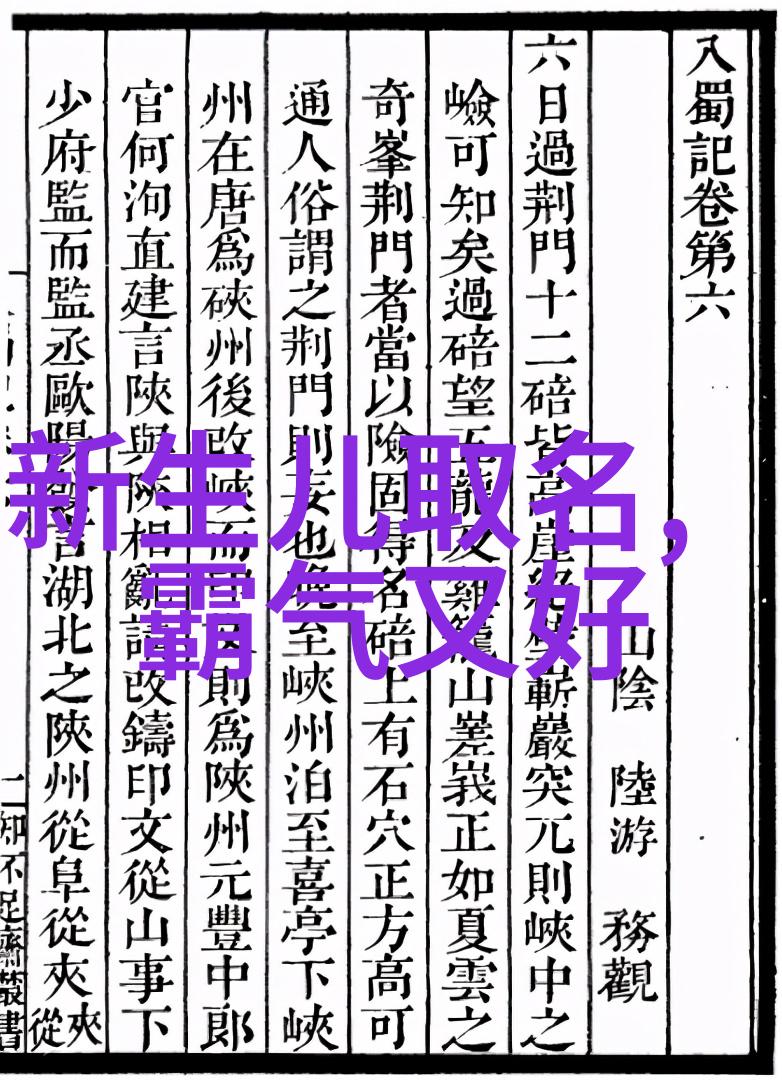 入蜀記卷第六
山陰 陸游 務觀
六日過荆門十二碚皆高崖絶壁嶄巖突兀則峽中之
嶮可知矣過碚望五龍及雞籠山嵳峩正如夏雲之
奇峯荆門者當以險固得名碚上有石穴正方高可
通人俗謂之荆門則妄也晚至峽州泊至喜亭下峽
州在唐爲硤州後改峽而印文則爲陜州元豐中郎
官何洵直建言陜與陜相亂請改鑄印文從山事下
少府監而監丞歐陽發言湖北之陜州從阜從夾夾從
新生儿取名,
霸气又好
二 知不足齋叢書